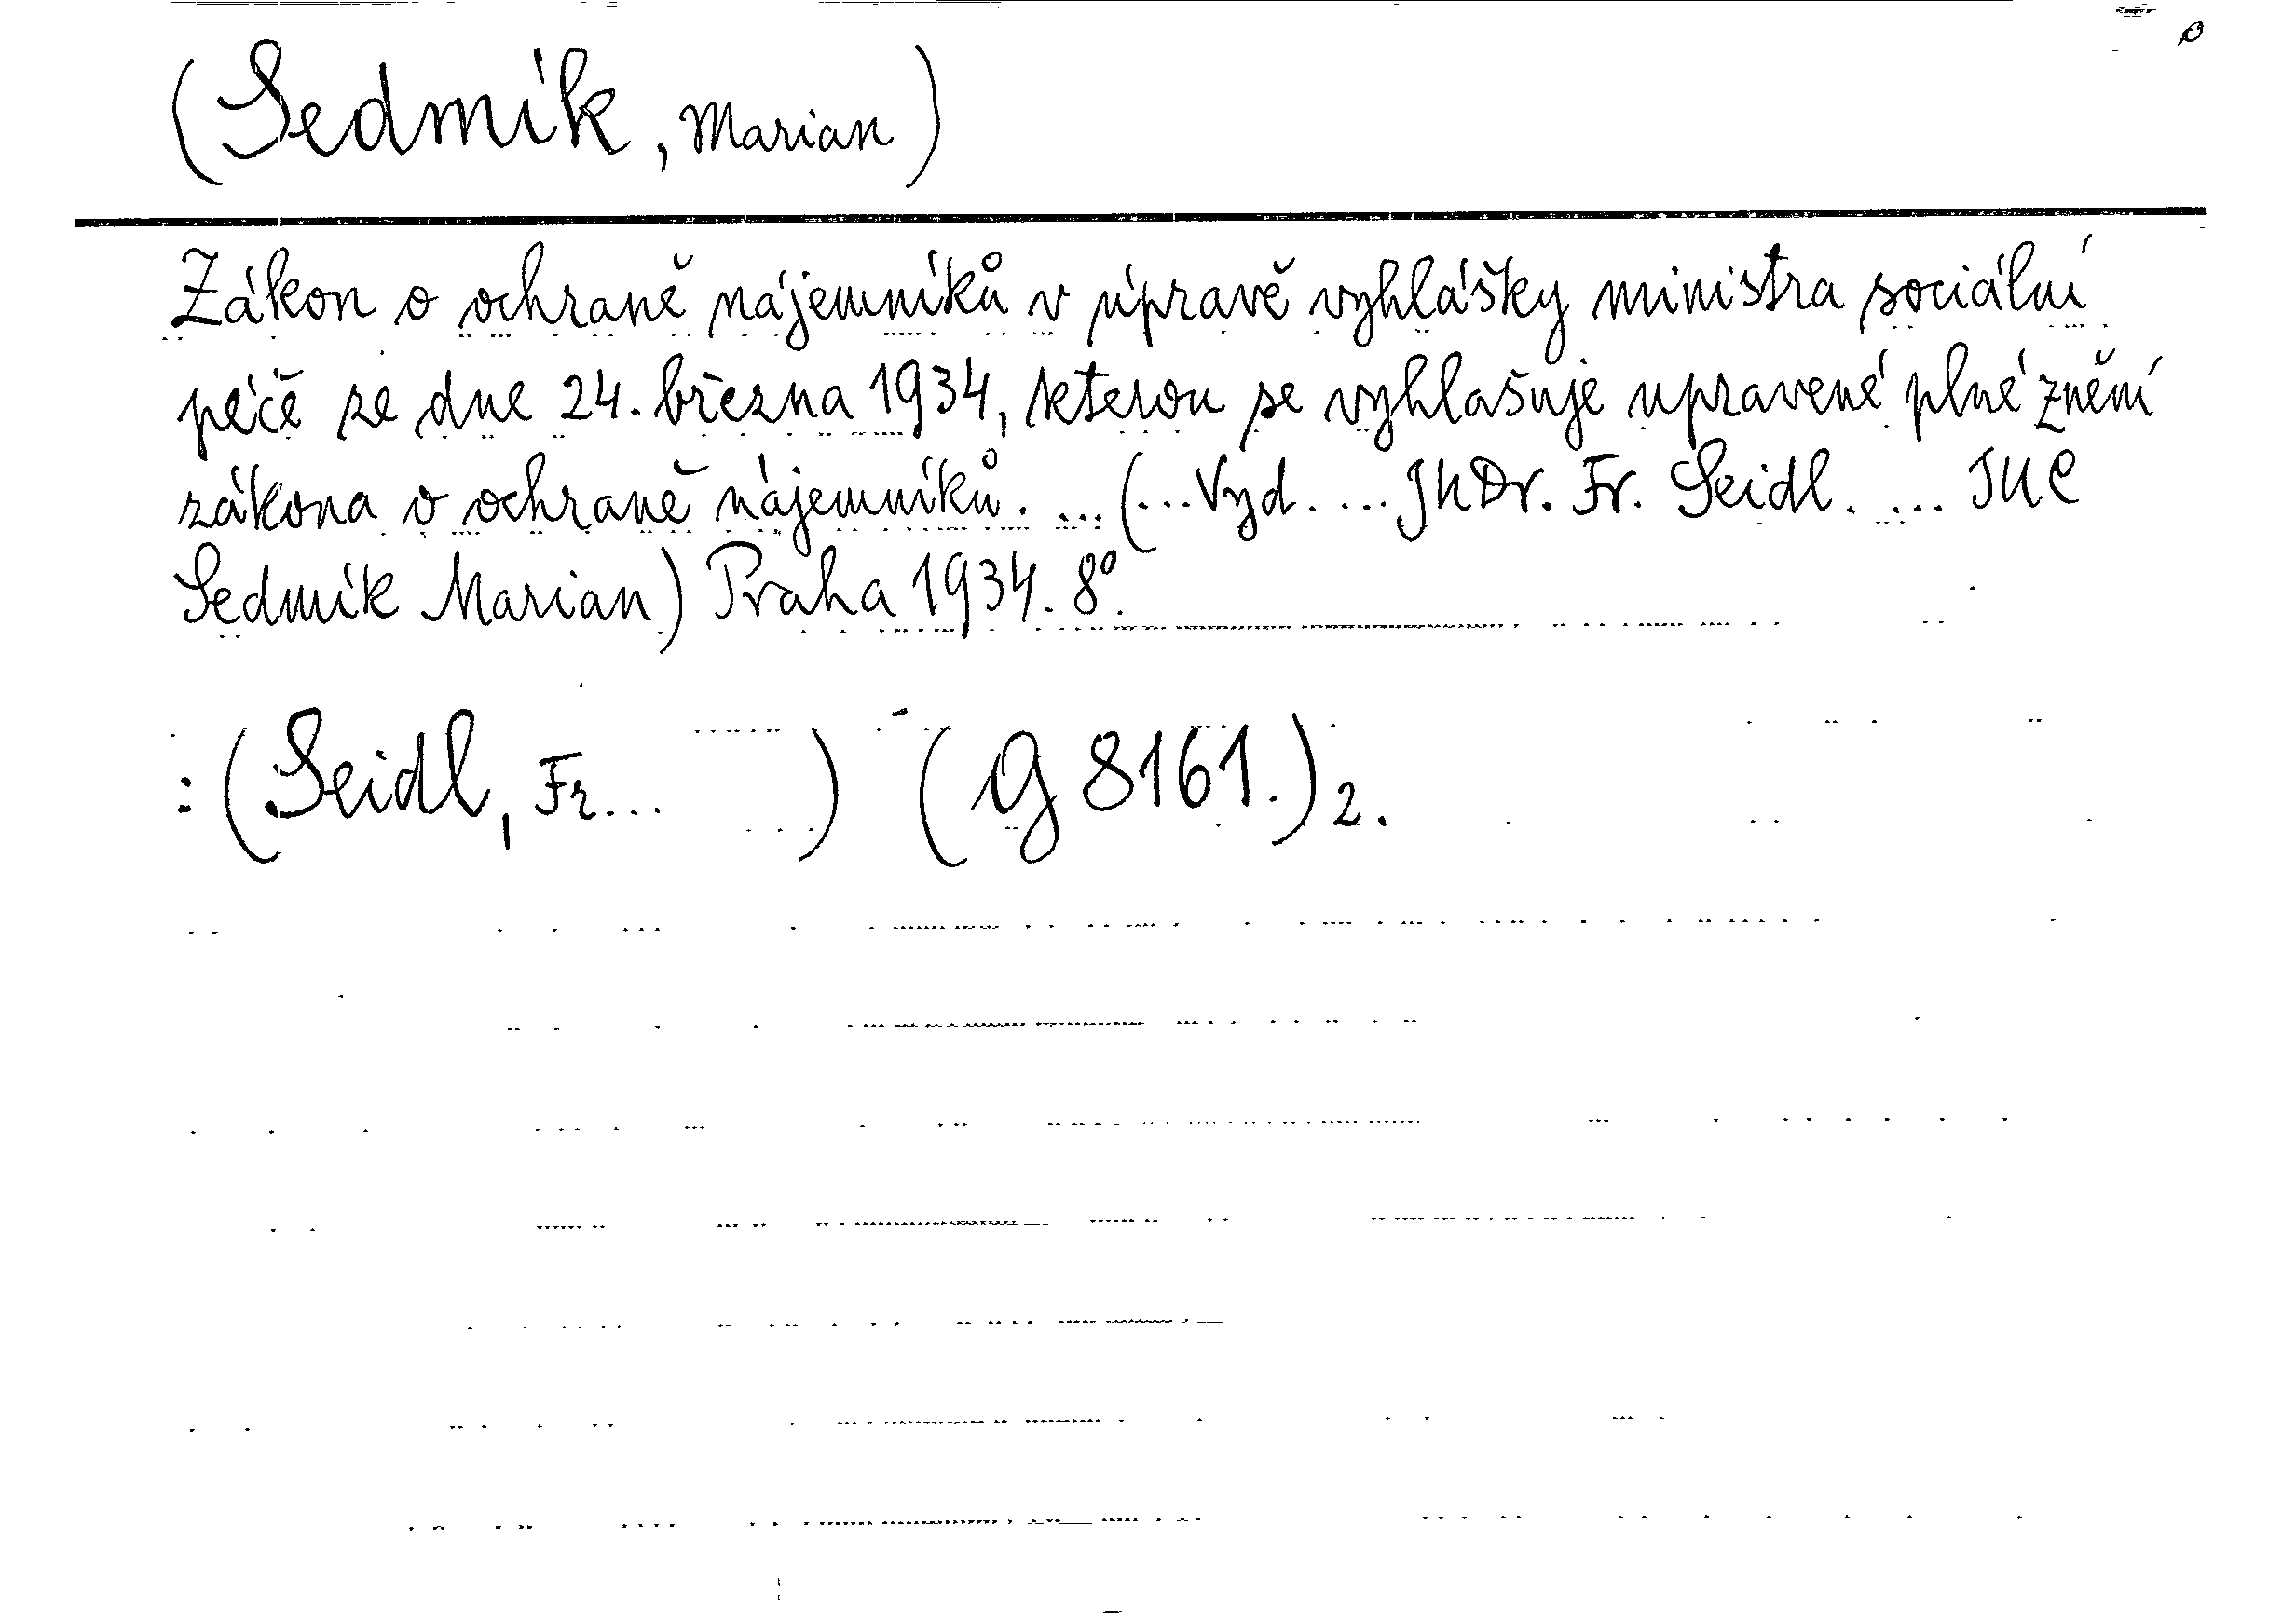 (Sedmík, Marian)
Zákon o ochraně nájemníků v úpravě vyhlášky ministra sociální
péče ze dne 24. března 1934, kterou se vyhlašuje upravené plné znění
zákona o ochraně nájemníků. ... (... Vyd. ... JUDr. Fr. Seidl. ... JUC
Sedmík Marian) Praha 1934. 8°.
: (Seidl, Fr... ) (G 8161.) 2.